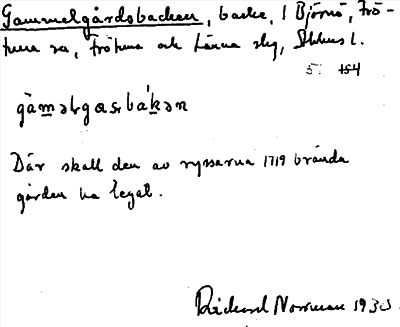 Gammelgårdsbacken, backe, i Björnö, Frö-
tuna sn, Frötuna och Länna slg, Sthlms l.
5: 154
gàmalgασbákən
Där skall den av ryssarna 1719 brända
gården ha legat.
Rickard Norrman 1933